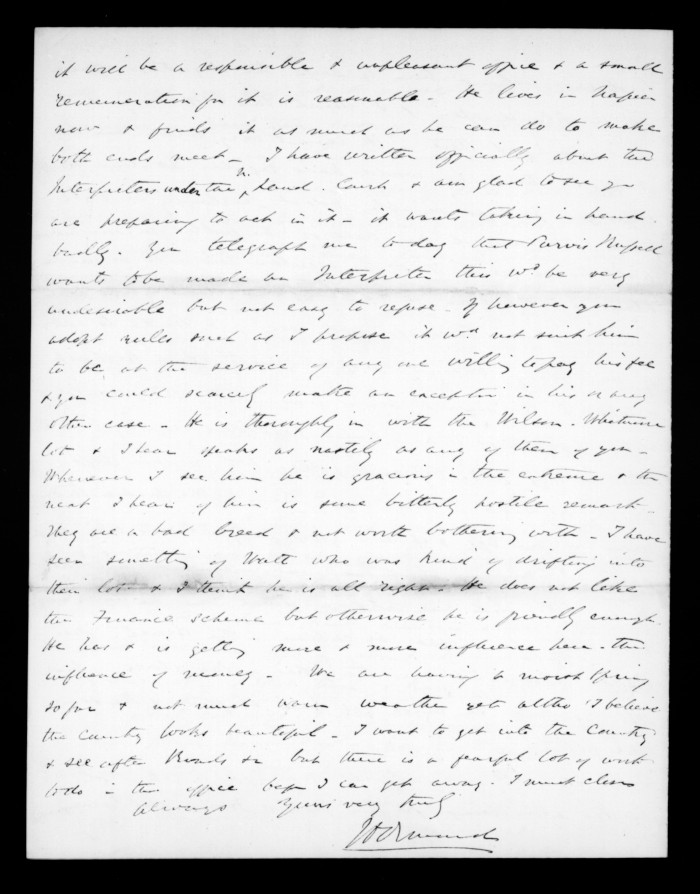 it will be a responsible & unpleasant office & a small
remuneration for it is reasonable - He lives in Napier
now & finds it as much as he can do to make
both ends meet - I have written officially about the
Interpreters under the N. Land Court & am glad to see you
are preparing to act in it - it wants taking in hand
badly. You telegraph me to day that Purvis Russell
wants to be made an Interpreter this wd be very
undesirable but not easy to refuse. If however you
adopt rules such as I propose it wd not suit him
to be at the service of any one willing to pay his fee
& you could scarcely make an exception in his or any
other case - He is thoroughly in with the Wilson - Whitmore
lot & I hear speaks as nastily as any of them of you -
Whenever I see him he is gracious in the extreme & the
next I hear of him is some bitterly hostile remark -
They are a bad breed & not worth bothering with - I have
seen something of Watt who was kind of drifting into
their lot & I think he is all right. He does not like
the Finance scheme but otherwise he is friendly enough.
He has & is getting more & more influence here - the
influence of money - We are having a moist Spring
so far & not much warm weather yet altho' I believe
the Country looks beautiful - I want to get into the Country
& see after Roads &c but there is a fearful lot of work
to do in the office before I can get away. I must close
Always Yours very truly
JD Ormond